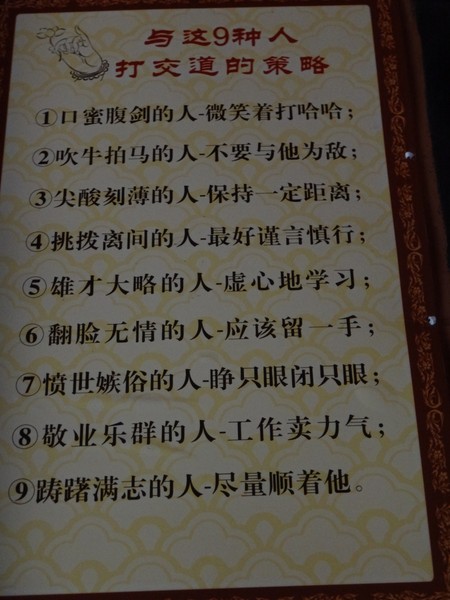 与这9种人
打交道的策略
①口蜜腹剑的人-微笑着打哈哈；
②吹牛拍马的人-不要与他为敌；
③尖酸刻薄的人-保持一定距离；
④挑拨离间的人-最好谨言慎行；
⑤雄才大略的人-虚心地学习；
⑥翻脸无情的人-应该留一手；
⑦愤世嫉俗的人-睁只眼闭只眼；
⑧敬业乐群的人-工作卖力气；
⑨踌躇满志的人-尽量顺着他。